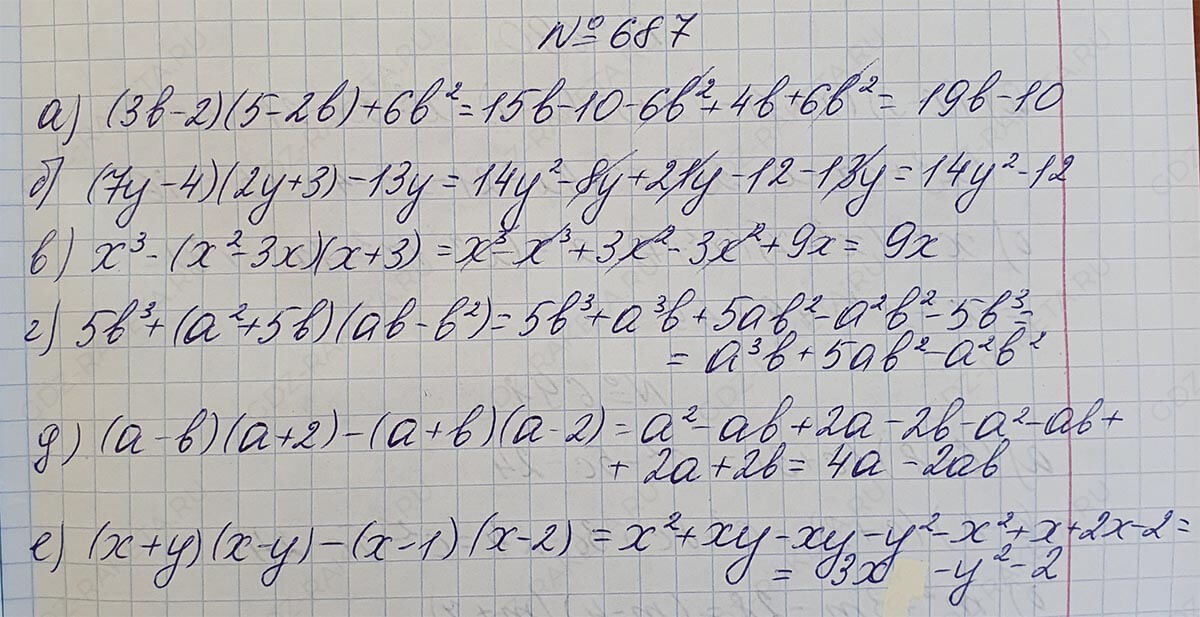 № 687
а) (3b-2)(5-2b)+6b²=15b-10-6b²+4b+6b²= 19b-10
б) (7y-4)(2y+3)-13y=14y²-8y+21y-12-13y=14y²-12
в) x³-(x²-3x)(x+3)=x³-x³+3x²-3x²+9x= 9x
г) 5b³+(a²+5b)(ab-b²)=5b³+a³b+5ab²-a²b²-5b³=
= a³b+5ab²-a²b²
д) (a-b)(a+2)-(a+b)(a-2)=a²-ab+2a-2b-a²-ab+
+2a+2b= 4a-2ab
е) (x+y)(x-y)-(x-1)(x-2)=x²+xy-xy-y²-x²+x+2x-2=
= 3x -y²-2